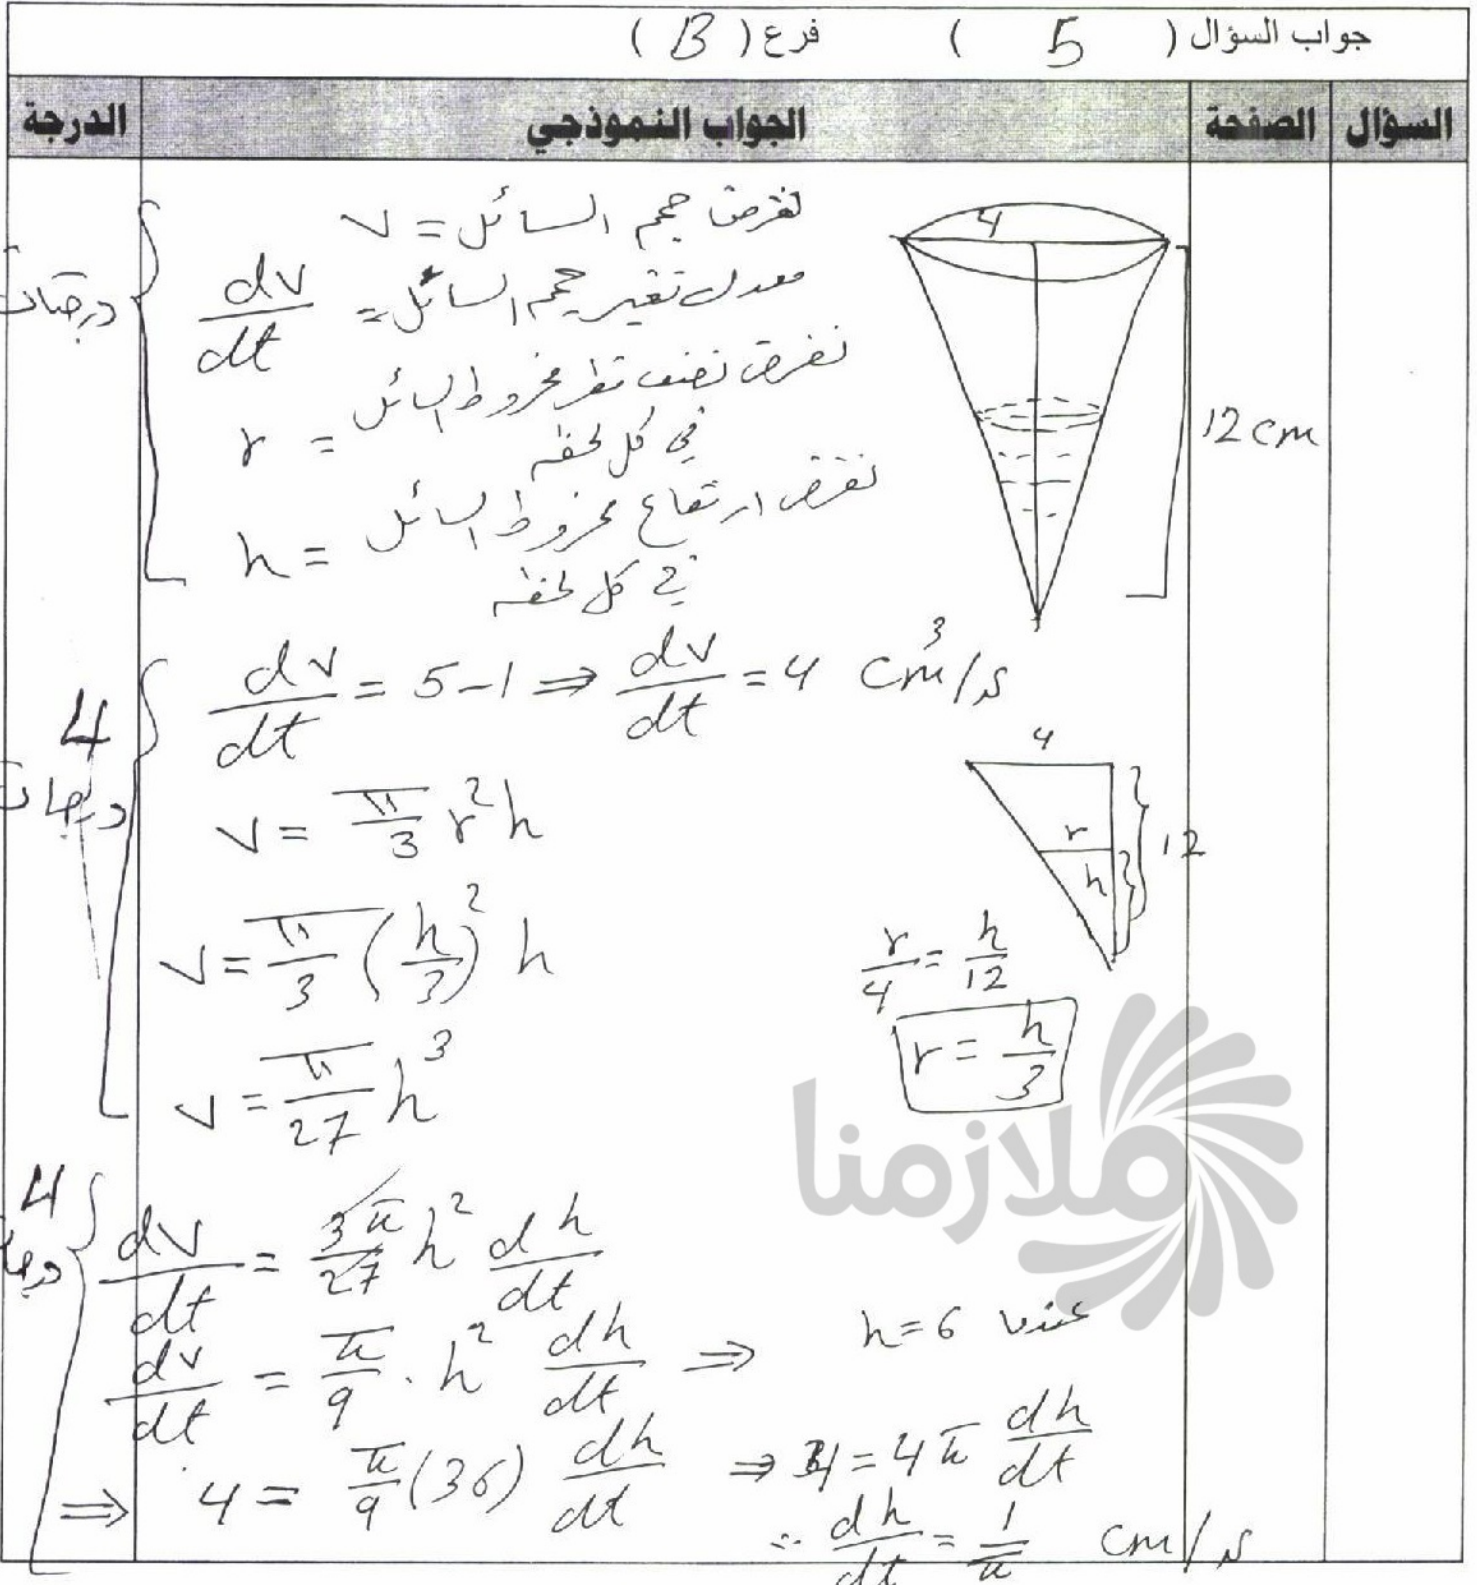 جواب السؤال ( 5 ) فرع ( B )
السؤال الصفحة الجواب النموذجي الدرجة
نفرض حجم السائل = v
معدل تغير حجم السائل = dv/dt
نفرض نصف قطر مخروط السائل
في كل لحظه = r
نفرض ارتفاع مخروط السائل
في كل لحظه = h
درجتان
4
12 cm
dv/dt = 5-1 ⇒ dv/dt = 4 cm³/s
4 درجات
v = π/3 r²h
4
r
h
12
v = π/3 (h/3)² h
r/4 = h/12
r = h/3
v = π/27 h³
ملازمنا
4
dv/dt = 3π/27 h² dh/dt
dv/dt = π/9 . h² dh/dt ⇒ عندما h=6
⇒ 4 = π/9 (36) dh/dt ⇒ 4 = 4π dh/dt
∴ dh/dt = 1/π cm/s